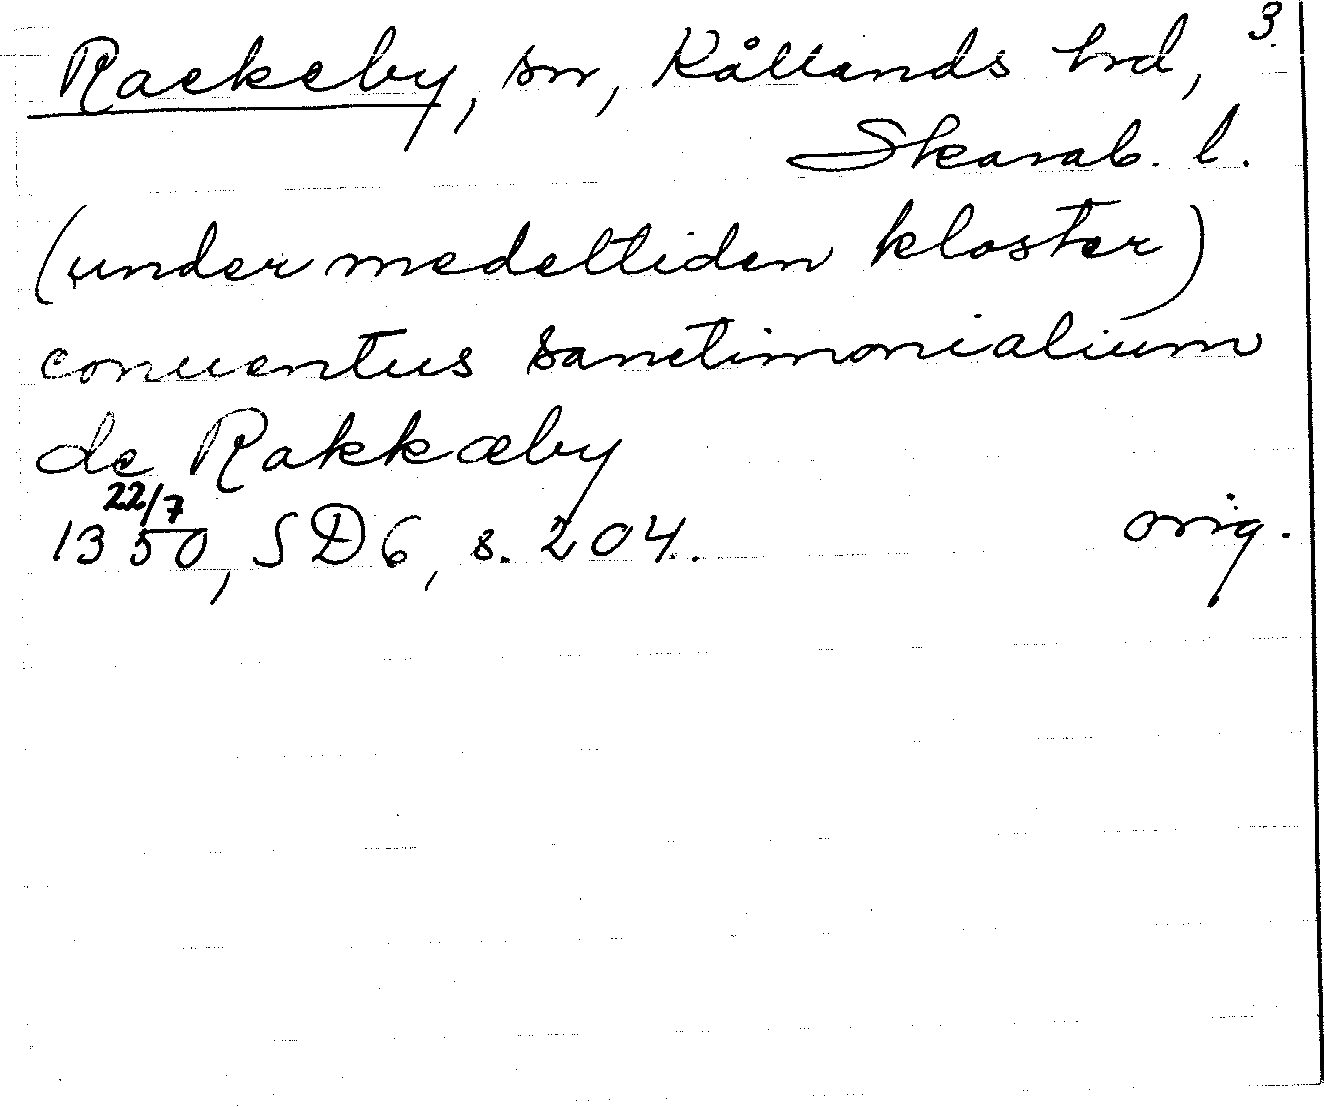 3.
Rackeby, sn, Kållands hrd,
Skarab. l.
(under medeltiden kloster)
conuentus sanctimonialium
de Rakkæby
22/7
1350, SD 6, s. 204. orig.